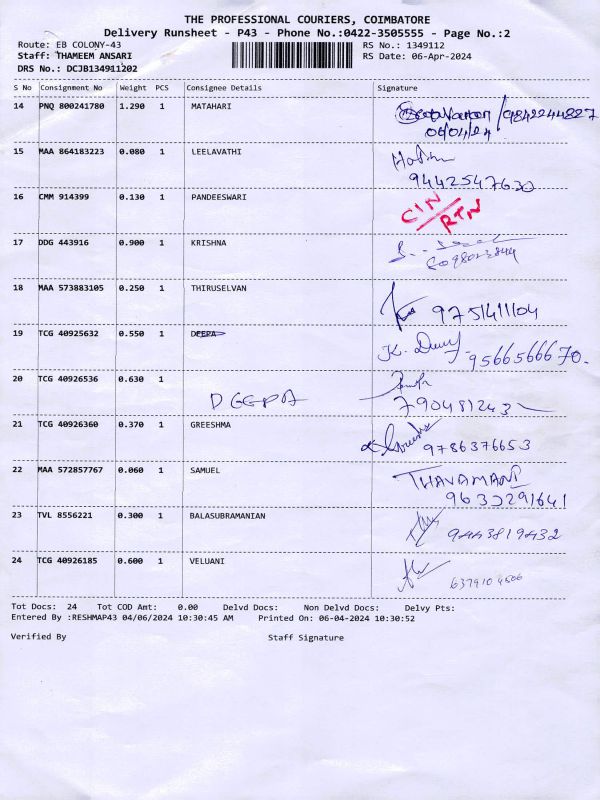 THE PROFESSIONAL COURIERS, COIMBATORE
Delivery Runsheet - P43 - Phone No.:0422-3505555 - Page No.:2
Route: EB COLONY-43 RS No.: 1349112
Staff: THAMEEM ANSARI RS Date: 06-Apr-2024
DRS No.: DCJB134911202
S No Consignment No Weight PCS Consignee Details Signature
14 PNQ 800241780 1.290 1 MATAHARI /9842244827
06/04/24
15 MAA 864183223 0.080 1 LEELAVATHI
9442547630
16 CMM 914399 0.130 1 PANDEESWARI CIN/RTN
17 DDG 443916 0.900 1 KRISHNA
18 MAA 573883105 0.250 1 THIRUSELVAN 9751411104
19 TCG 40925632 0.550 1 DEEPA K. 9566566670.
20 TCG 40926536 0.630 1
DEEPA
21 TCG 40926360 0.370 1 GREESHMA 9786376653
22 MAA 572857767 0.060 1 SAMUEL THAVAMANI
9632291641
23 TVL 8556221 0.300 1 BALASUBRAMANIAN 9443819432
24 TCG 40926185 0.600 1 VELUANI
Tot Docs: 24 Tot COD Amt: 0.00 Delvd Docs: Non Delvd Docs: Delvy Pts:
Entered By :RESHMAP43 04/06/2024 10:30:45 AM Printed On: 06-04-2024 10:30:52
Verified By Staff Signature